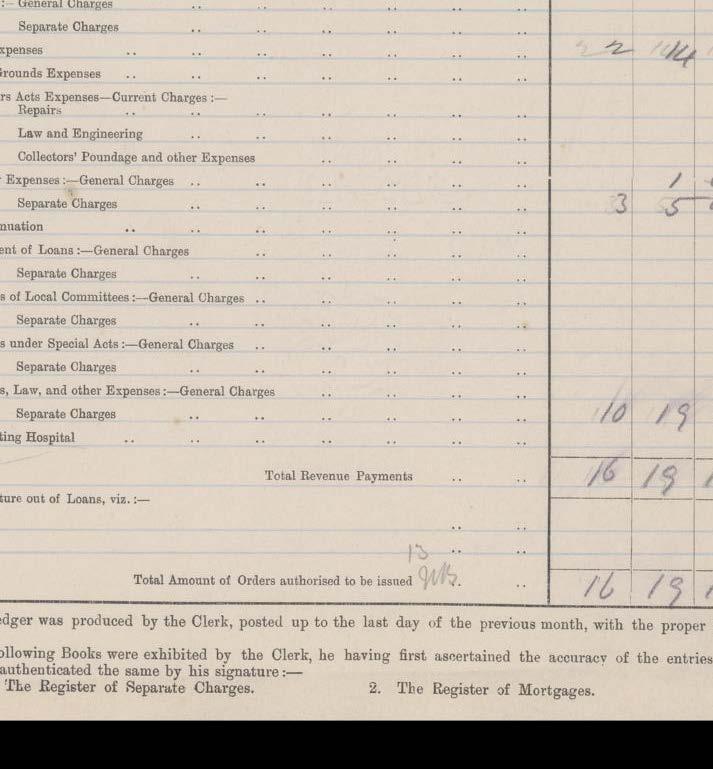 :— General Charges .. .. .. .. .. ..
Separate Charges .. .. .. .. .. ..
xpenses .. .. .. .. .. .. .. 2 14
Grounds Expenses .. .. .. .. .. .. ..
rs Acts Expenses—Current Charges :—
Repairs .. .. .. .. .. .. ..
Law and Engineering .. .. .. .. .. ..
Collectors' Poundage and other Expenses .. .. .. ..
Expenses :—General Charges .. .. .. .. .. .. 1
Separate Charges .. .. .. .. .. .. 3 5
nuation .. .. .. .. .. .. ..
ent of Loans :—General Charges .. .. .. .. ..
Separate Charges .. .. .. .. .. ..
s of Local Committees :—General Charges .. .. .. .. ..
Separate Charges .. .. .. .. .. ..
s under Special Acts :—General Charges .. .. .. .. ..
Separate Charges .. .. .. .. .. ..
s, Law, and other Expenses :—General Charges .. .. .. ..
Separate Charges .. .. .. .. .. .. 10 19
ting Hospital .. .. .. .. .. .. ..
Total Revenue Payments .. .. 16 19 1
ture out of Loans, viz. :—
.. ..
13 .. ..
Total Amount of Orders authorised to be issued .. .. 16 19 1
edger was produced by the Clerk, posted up to the last day of the previous month, with the proper
ollowing Books were exhibited by the Clerk, he having first ascertained the accuracy of the entries
authenticated the same by his signature :—
The Register of Separate Charges. 2. The Register of Mortgages.